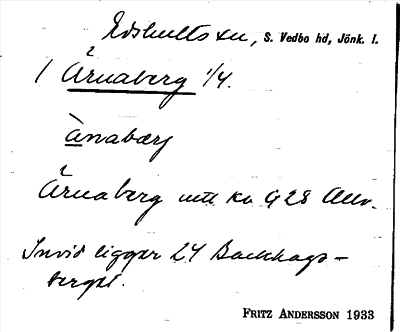 Edshults sn, S. Vedbo hd, Jönk. l.
/ Ärnaberg 1/4.
ànabærj
Ärnaberg mtl Ka G28 Allv.
Invid ligger 24 Backhags-
berget.
FRITZ ANDERSSON 1933